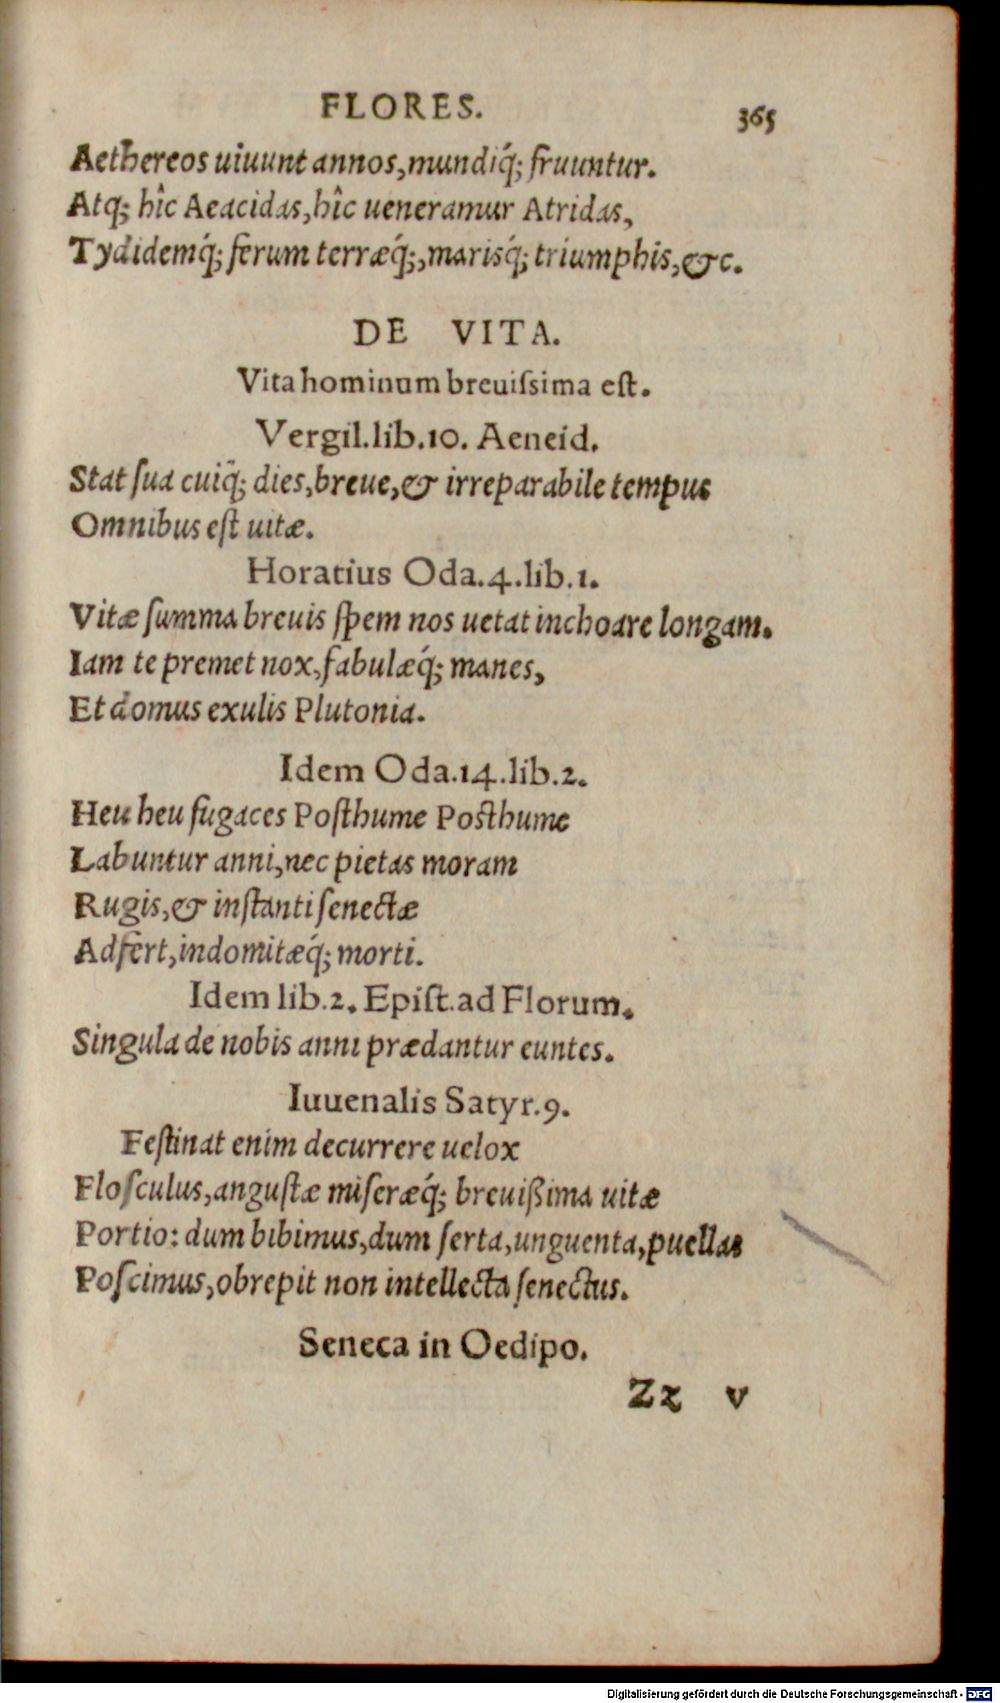 FLORES. 365
Aethereos uiuunt annos, mundiq́; fruuntur.
Atq; hîc Aeacidas, hîc ueneramur Atridas,
Tydidemq́; ferum terræq́;, marisq́; triumphis, &c.
DE VITA.
Vita hominum breuiſsima eſt.
Vergil. lib. 10. Aeneid.
Stat ſua cuiq̃; dies, breue, & irreparabile tempus
Omnibus eſt uitæ.
Horatius Oda. 4. lib. 1.
Vitæ ſumma breuis ſpem nos uetat inchoare longam.
Iam te premet nox, fabulæq́; manes,
Et domus exulis Plutonia.
Idem Oda. 14. lib. 2.
Heu heu fugaces Poſthume Poſthume
Labuntur anni, nec pietas moram
Rugis, & inſtanti ſenectæ
Adfert, indomitæq́; morti.
Idem lib. 2. Epiſt. ad Florum.
Singula de nobis anni prædantur euntes.
Iuuenalis Satyr. 9.
Feſtinat enim decurrere uelox
Floſculus, anguſtæ miſeræq́; breuißima uitæ
Portio: dum bibimus, dum ſerta, unguenta, puellas
Poſcimus, obrepit non intellecta ſenectus.
Seneca in Oedipo.
Zz v
Digitalisierung gefördert durch die Deutsche Forschungsgemeinschaft - DFG